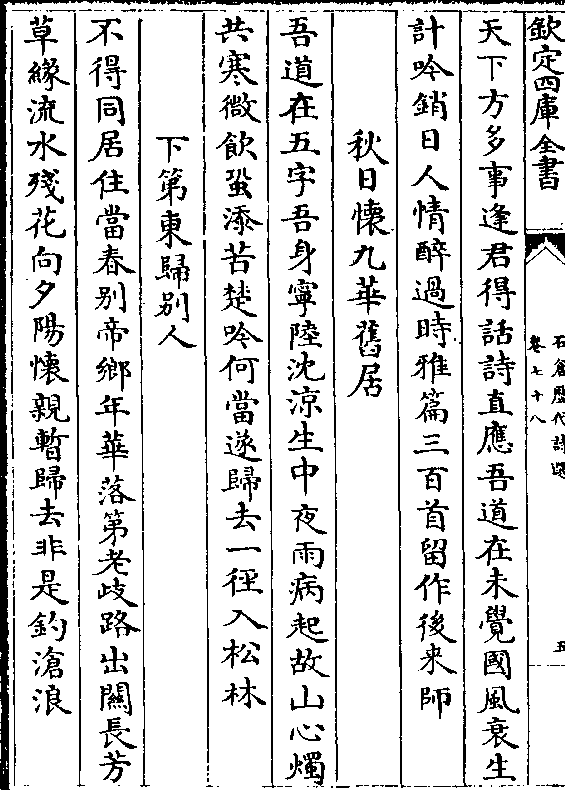 欽定四庫全書
石倉歴代詩選
卷七十八
五
天下方多事逢君得話詩直應吾道在未覺國風衰生
計吟銷日人情醉過時雅篇三百首留作後来師
秋日懐九華舊居
吾道在五字吾身寧陸沈涼生中夜雨病起故山心燭
共寒微飲蛩添苦楚吟何當遂歸去一徑入松林
下第東歸别人
不得同居住當春别帝鄉年華落第老歧路出關長芳
草縁流水殘花向夕陽懐親暫歸去非是釣滄浪